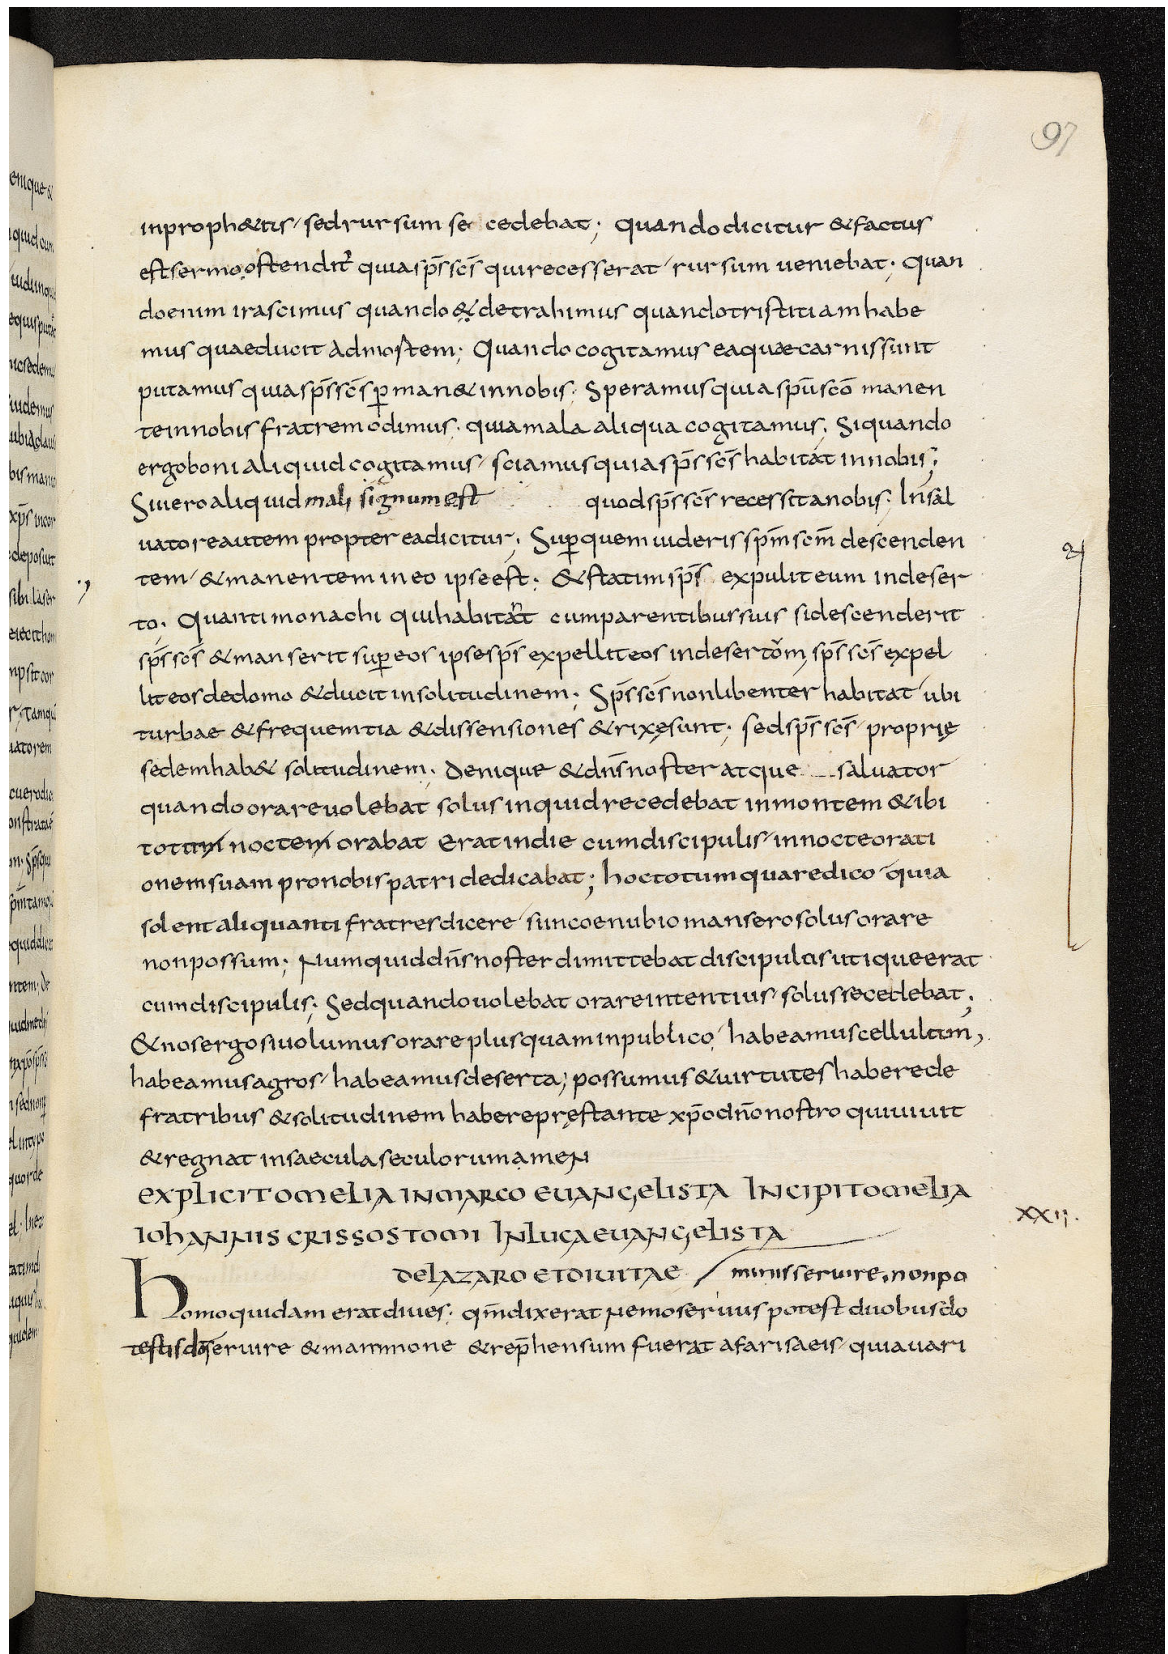 97
inproph&is sedrursum se cedebat; Quandodicitur &factus
estsermo ostendit quiasp̄s sc̄s quirecesserat rursum ueniebat; Quan
doenim irascimus quando & detrahimus quandotristitiamhabe
mus quaeducit admortem; Quando cogitamus eaquaecarnissunt
putamus quiasp̄ssc̄s p̲man& innobis; Speramusquia sp̄uscō manen
teinnobis fratrem odimus; quiamala aliqua cogitamus; Siquando
ergoboni aliquid cogitamus sciamusquiasp̄ssc̄s habitat innobis;
Siueroaliquid mali signum est quodsp̄ssc̄s recessitanobis; Insal
uatoreautem propter eadicitur; Sup̲quem uideris sp̄m sc̄m descenden
tem &manentem ineo ipseest; &statimsp̄s expuliteum indeser
to. Quantimonachi quihabitat cumparentibussuis sidescenderit
sp̄s sc̄s &manserit sup̲eos ipsesp̄s expelliteos indesertom sp̄s sc̄s expel
liteosdedomo &ducit insolitudinem; Sp̄ssc̄snonlibenter habitat ubi
turbae &frequemtia &dissensiones &rixęsunt; sedsp̄s sc̄s proprię
sedemhab& solitudinem. denique &dn̄snoster atque saluator
quandoorareuolebat solus inquidrecedebat inmontem &ibi
totum noctem orabat Eratindie cumdiscipulis innocteorati
onemsuam pronobispatri dedicabat; hoctotumquaredico quia
solent aliquanti fratresdicere suncoenubiomanserosolusorare
nonpossum; Numquiddn̄snoster dimittebat discipulis utiqueerat
cumdiscipulis; Sedquandouolebat orareintentius solussecedebat;
&nosergosiuolumusorare plusquaminpublico habeamuscellulam,
habeamusagros habeamusdeserta; possumus &uirtutes haberede
fratribus &solitudinem haberepręstante xp̄odn̄onostro quiuiuit
&regnat insaeculaseculorumamen
EXPLICITOMELIA INMARCO EUANGELISTA INCIPITOMELIA
IOHANNIS CRISSOSTOMI INLUCAEUANGELISTA
XXII.
DELAZARO ETDIUITAE / minisseruire. nonpo
Homoquidam eratdiues; qm̄dixerat nemoseruus potest duobusdo
testisdōseruire &mammone &rep̄hensum fuerat afarisaeis quiauari